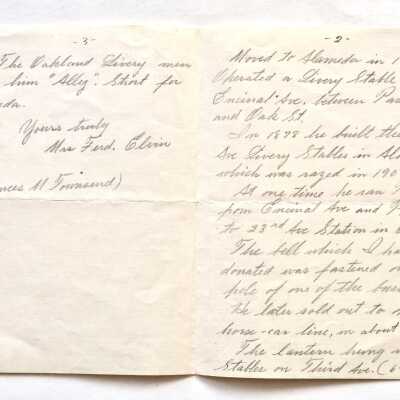 -3-
The Oakland Livery men
him "Ally". Short for
eda.
Yours truly
Mrs Ferd. Elvin
nces M Townsend)
-2-
Moved to Alameda in 1
Operated a Livery Stable
Encinal Ave. between Pa
and Oak St.
In 1878 he built the
Ave Livery Stables in Ala
which was razed in 190
At one time he ran
from Encinal Ave and
to 23rd Ave Station in
The bell which I ha
donated was fastened on
pole of one of the bus
He later sold out to
horse-car line, in about
The lantern hung
Stables on Third Ave. (